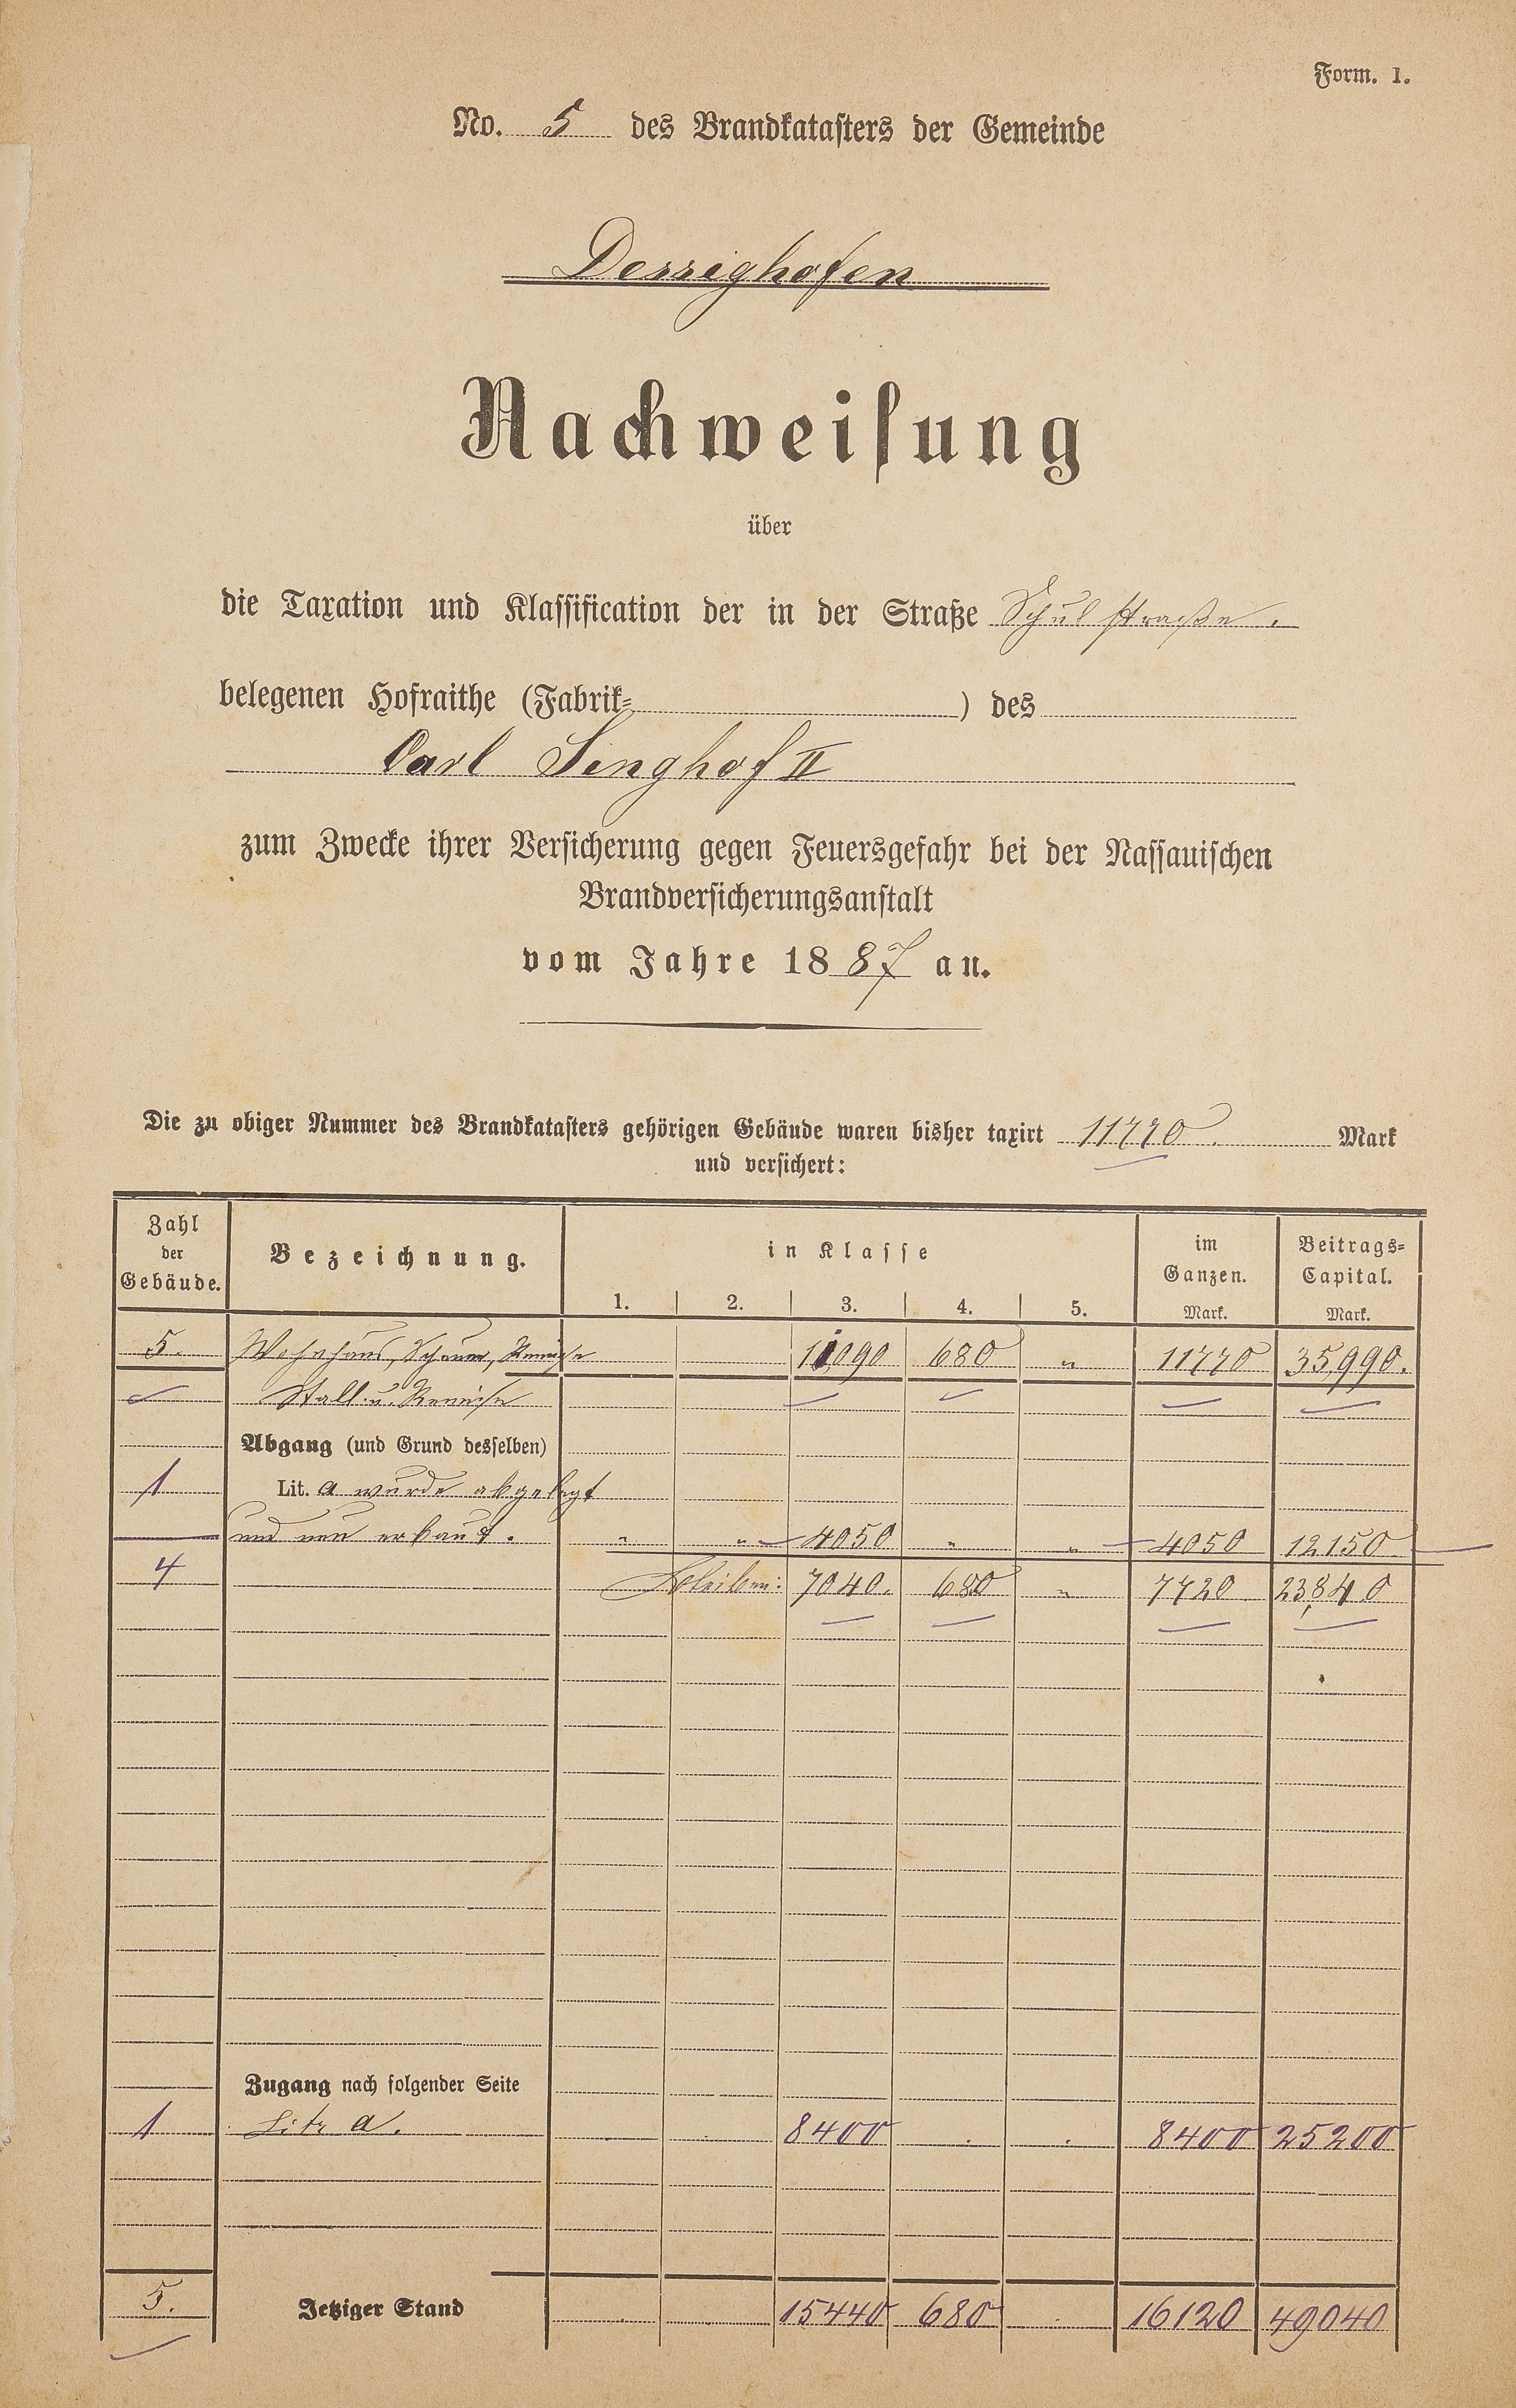 Form. 1.
No. 5 des Brandkatasters der Gemeinde
Dessighofen
Nachweisung
über
die Taxation und Klassification der in der Straße Schulstraße.
belegenen Hofraithe (Fabrik- ) des
Carl Singhof II
zum Zwecke ihrer Versicherung gegen Feuersgefahr bei der Nassauischen
Brandversicherungsanstalt
vom Jahre 1887 an.
Die zu obiger Nummer des Brandkatasters gehörigen Gebäude waren bisher taxirt 11770. Mark
und versichert:
Zahl der Gebäude. Bezeichnung. in Klasse im Ganzen. Beitrags-Capital.
1. 2. 3. 4. 5. Mark. Mark.
5. Wohnhaus, Scheuer, Remise 11090 680 " 11770 35,990.
Stall u. Remise
Abgang (und Grund desselben)
1 Lit. a wurde abgelegt
und neu erbaut. " " 4050 " " 4050 12150
4 Bleiben: 7040. 680 " 7720 23,840
Zugang nach folgender Seite
1 Litr a. 8400 . . 8400 25200
5. Jetziger Stand 15440 680 . 16120 49040